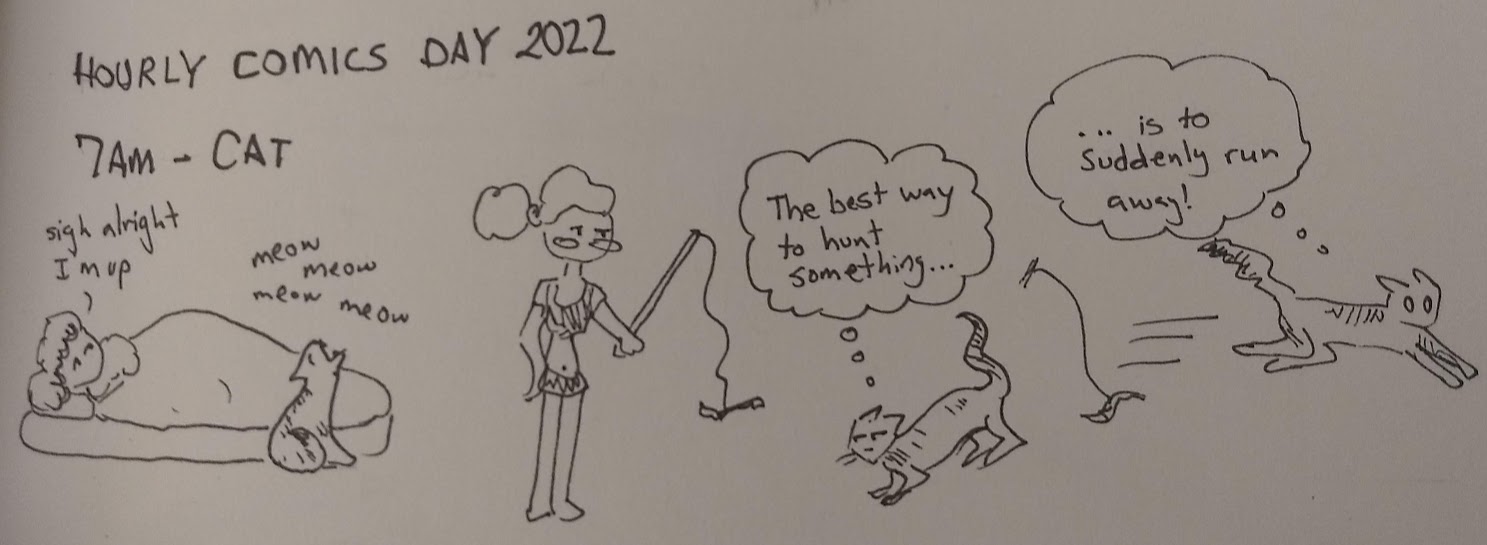 HOURLY COMICS DAY 2022
7AM - CAT
sigh alright
I m up
meow
meow
meow meow
The best way
to hunt
something...
... is to
suddenly run
away!